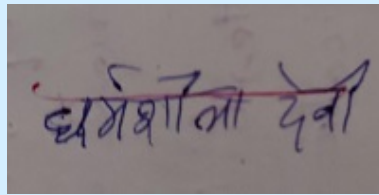 धर्मशीला देवी